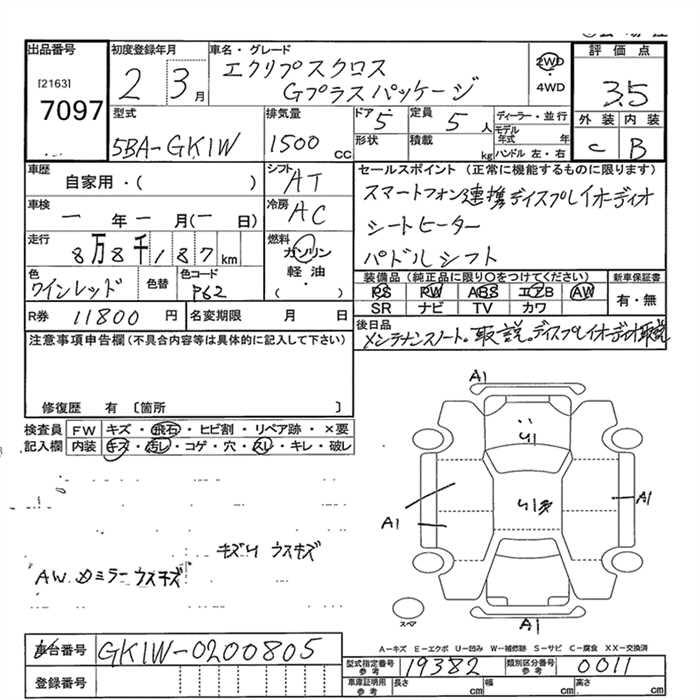 出品番号
[2163]
7097
初度登録年月
2 3月
車名・グレード
エクリプスクロス
Gプラスパッケージ
2WD
・
4WD
評価点
3.5
外装 内装
C B
型式
5BA-GK1W
排気量
1500 cc
ドア・
5
形状
定員
5人
積載
kg
ディーラー・並行
モデル年式 年
ハンドル 左・右
車歴
自家用・( )
シフト
AT
車検
一年一月(一日)
冷房
AC
走行
8万8千187km
燃料
ガソリン
軽油・
( )
色
ワインレッド
色替
色コード
P62
R券 11800円
名変期限 月 日
セールスポイント (正常に機能するものに限ります)
スマートフォン連携ディスプレイオーディオ
シートヒーター
パドルシフト
装備品 (純正品に限り○をつけてください)
PS PW ABS エアB AW
SR ナビ TV カワ
新車保証書
有・無
後日品
メンテナンスノート。取説。ディスプレイオーディオ取説
注意事項申告欄(不具合内容等は具体的に記入して下さい)
修復歴 有 〔箇所 〕
検査員 FW キズ・飛石・ヒビ割・リペア跡・×要
記入欄 内装 キズ・汚し・コゲ・穴・スレ・キレ・破レ
キズり ウスキズ
AW. カミラー ウスキズ
A1
A1
A1
A1
スペア
A-キズ E-エクボ U-凹み W-補修跡 S-サビ C-腐食 XX-交換済
車台番号 GK1W-0200805
登録番号
型式指定番号
参考
19382
類別区分番号
参考
0011
車庫証明用
参考
長さ cm 幅 cm 高さ cm